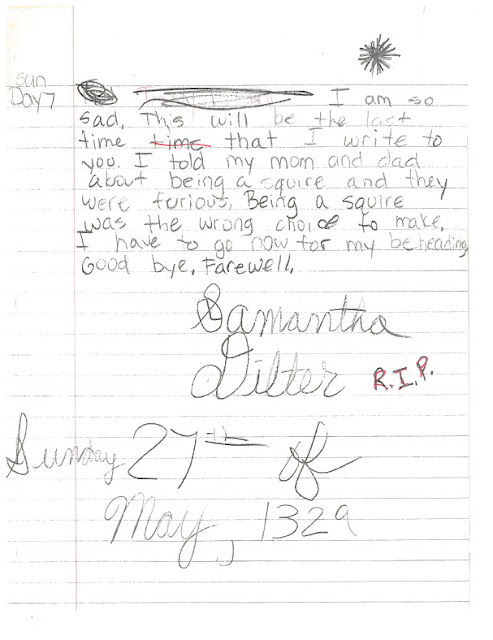 Sun
Day 7
I am so
sad. This will be the last
time time that I write to
you. I told my mom and dad
about being a squire and they
were furious. Being a squire
was the wrong choice to make.
I have to go now for my beheading
Good bye, Farewell,
Samantha
Dilter R.I.P.
Sunday 27th of
May, 1329